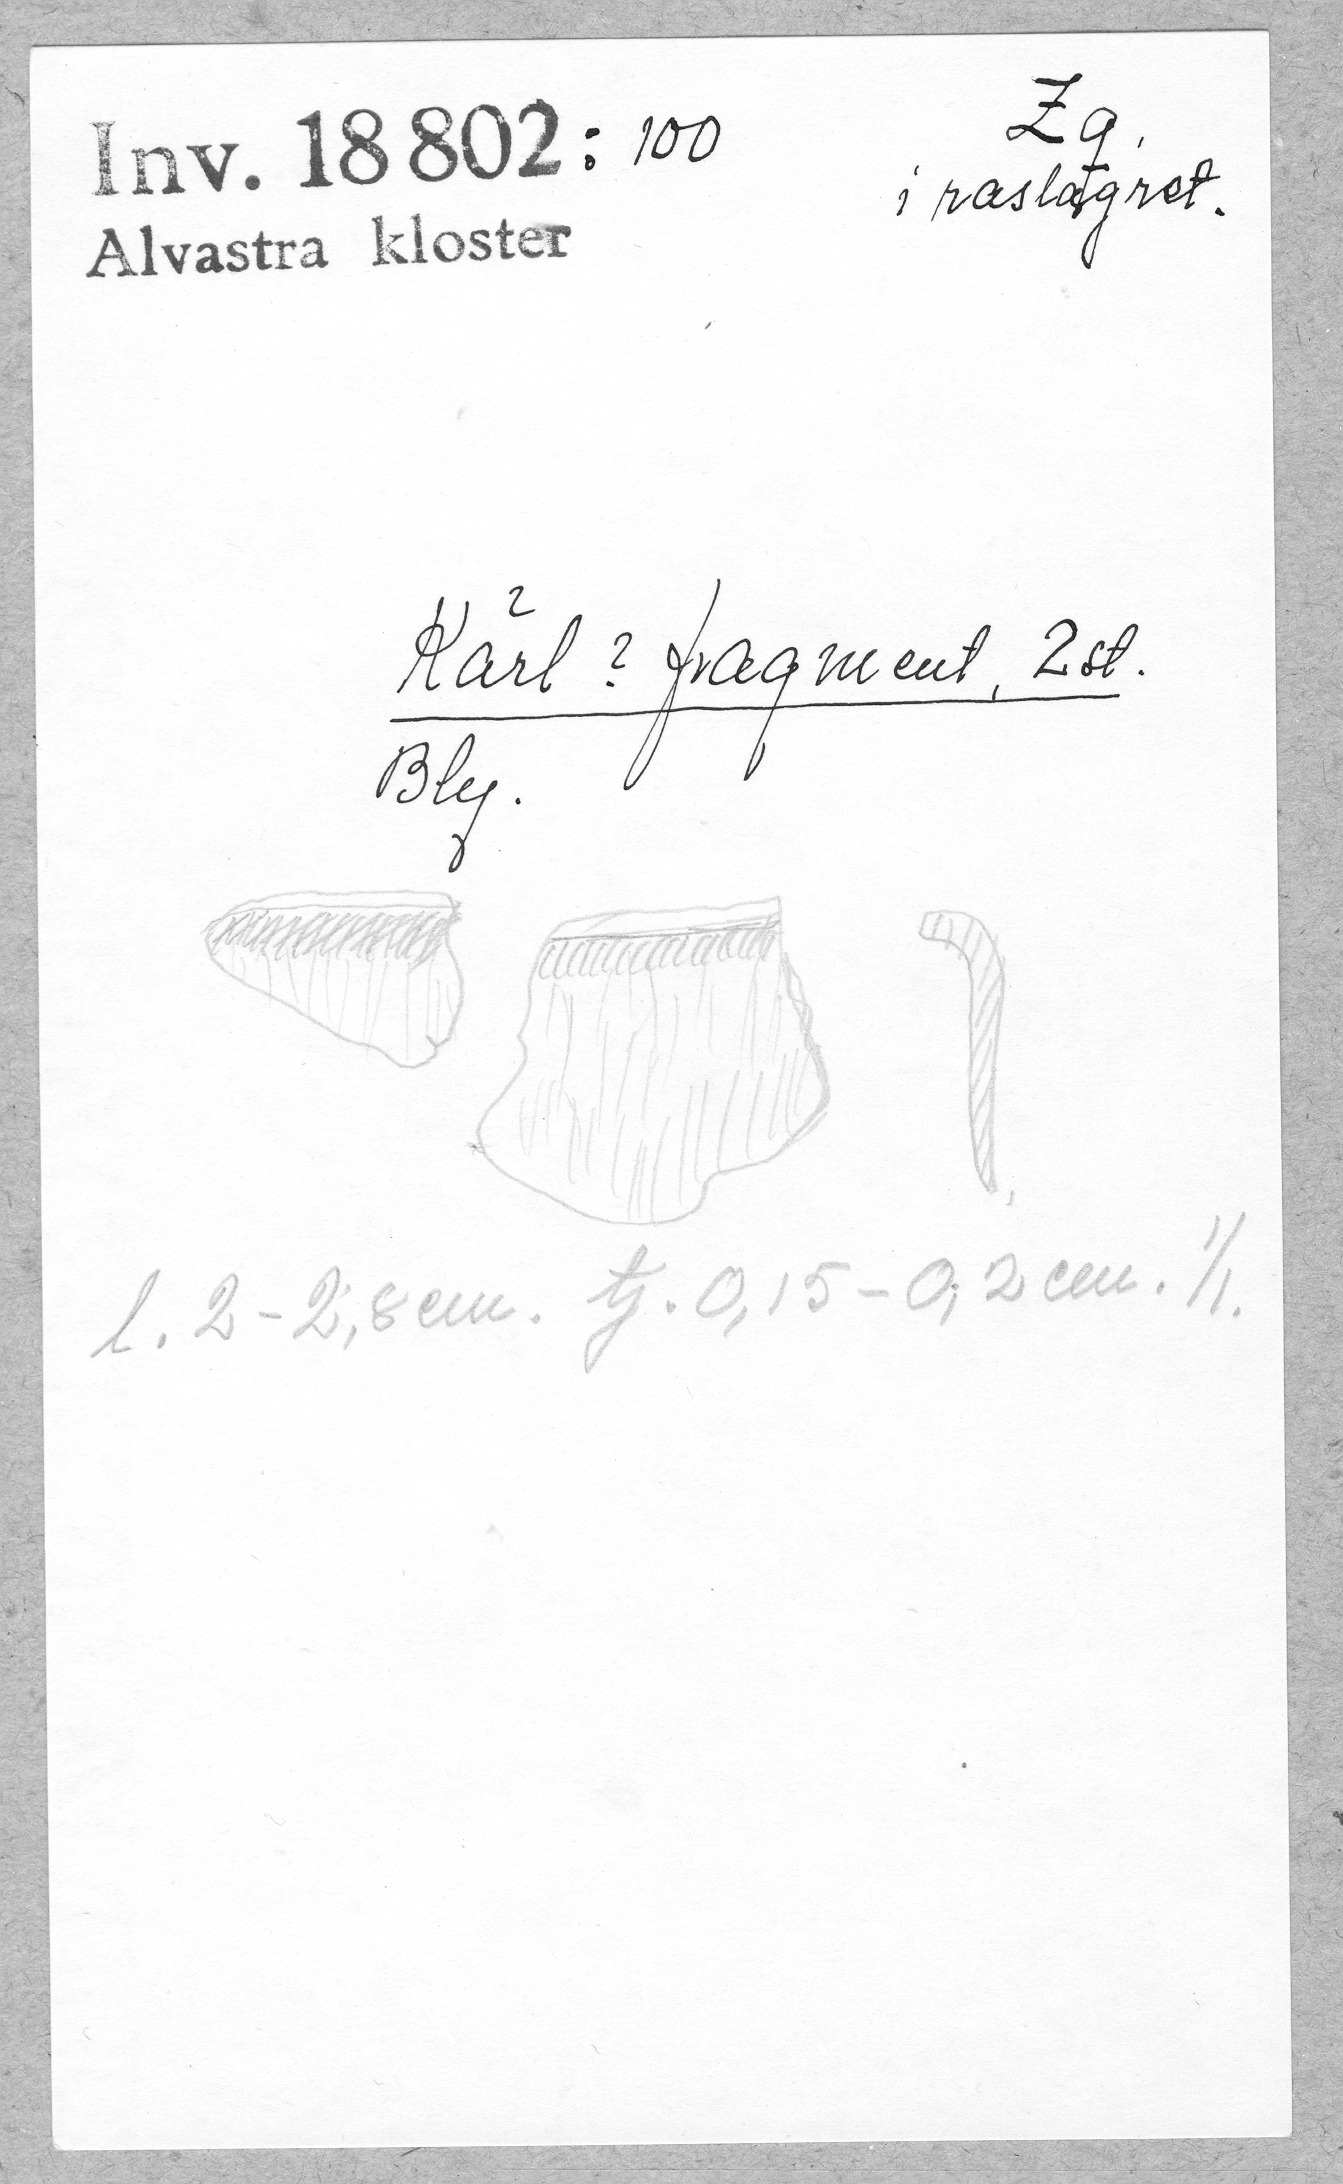 Inv. 18 802 : 100
Alvastra kloster
Zq.
i raslagret.
Kärl ? fragment, 2 st.
Bly.
l. 2 - 2,8 cm. tj. 0,15 - 0,2 cm. 1/1.